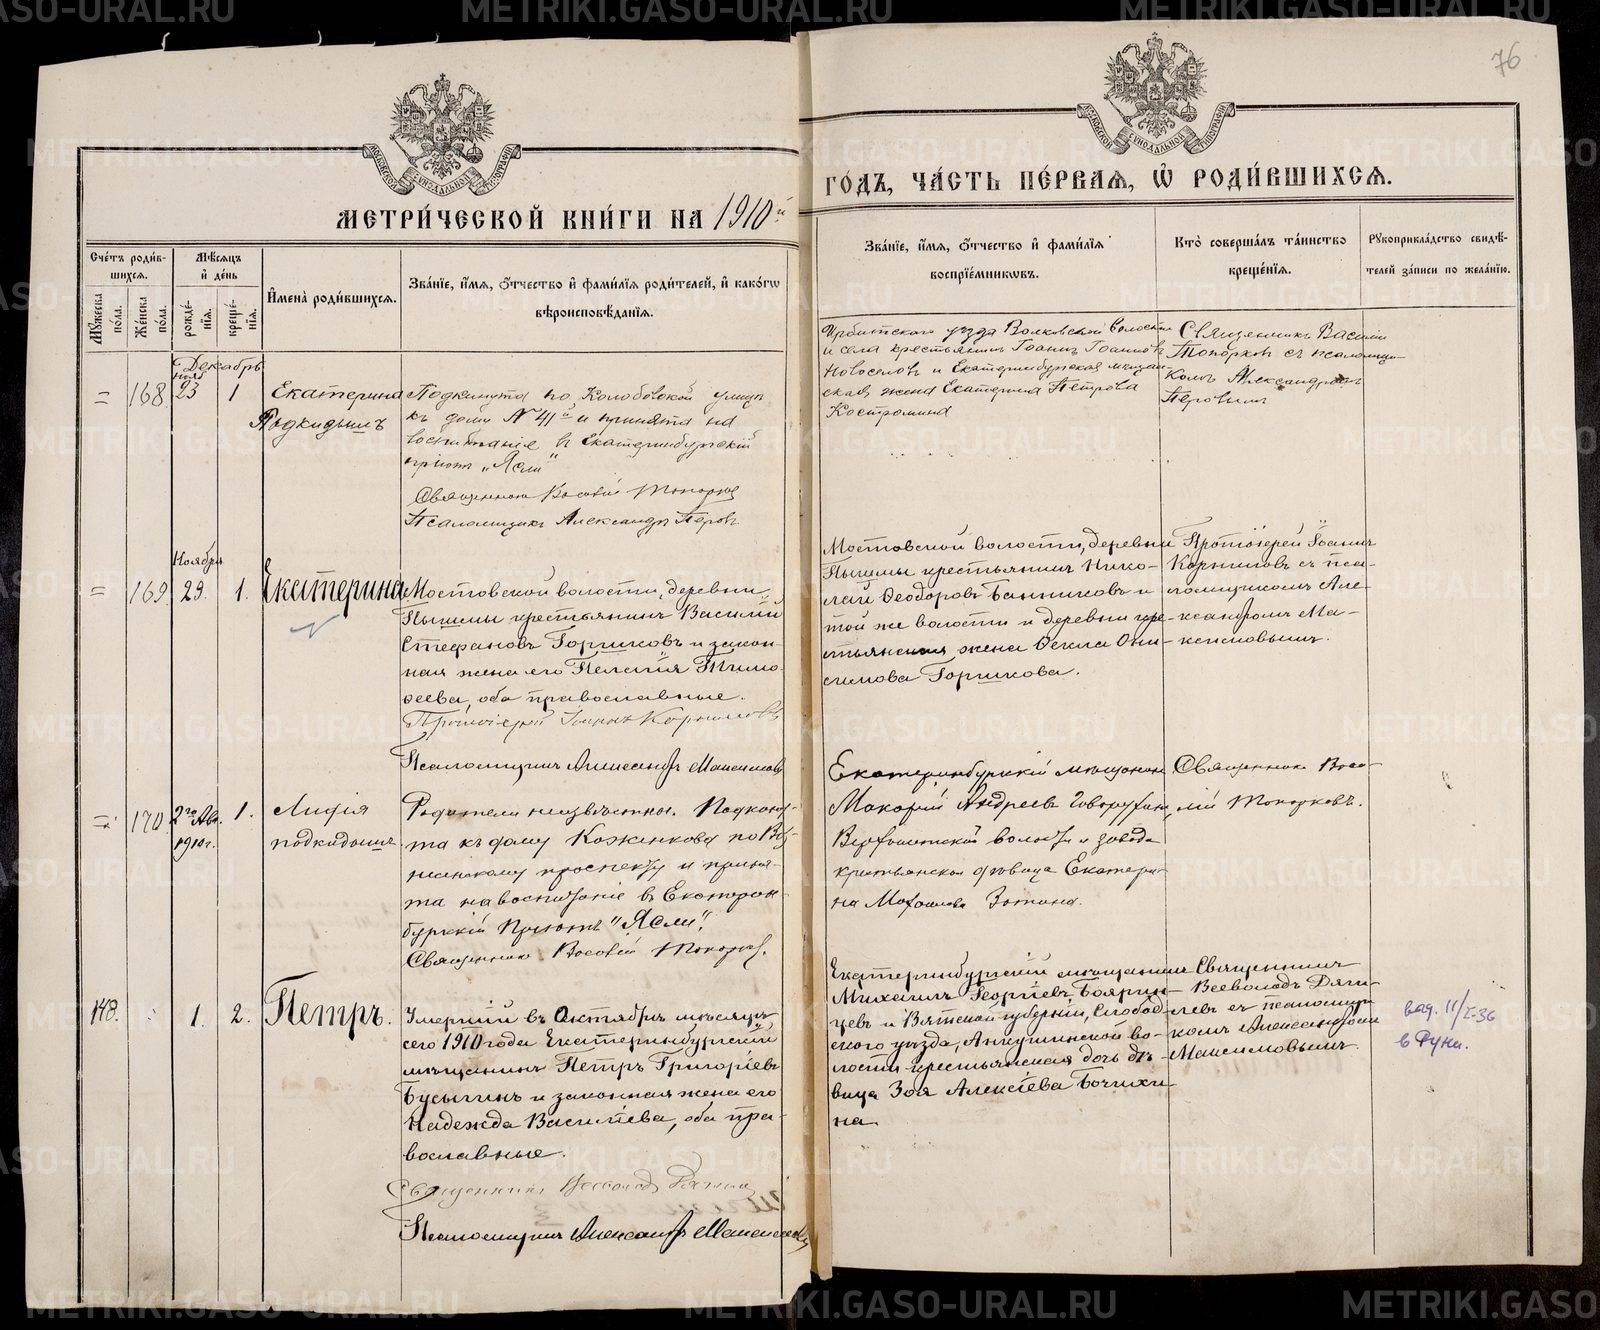 76
МЕТРИ́ЧЕСКОЙ КНИ́ГИ НА 1910й
ГО́ДЪ, ЧА́СТЬ ПЕ́РВАЯ, Ѿ РОДИ́ВШИХСЯ.
Сче́тъ роди́в-
шихся.
Му́жеска по́ла.
Же́нска по́ла.
Мѣ́сяцъ
и҆ де́нь
рожде́-
нїя.
креще́-
нїя.
И҆мена̀ роди́вшихся.
Зва́нїе, и҆́мя, ѻ҆́тчество и҆ фами́лїя роди́телей, и҆ како́гѡ
вѣроисповѣ́данїя.
Зва́нїе, и҆́мя, ѻ҆́тчество и҆ фами́лїя
воспрїе́мникѡвъ.
Кто̀ соверша́лъ та́инство
креще́нїя.
Рꙋкоприкла́дство свидѣ́-
телей за́писи по жела́нїю.
Декабрь
=
168
23
1
Екатерина
Подкидышъ
Подкинута по Колобовской улицѣ
къ дому № 41й и принята на
воспитаніе въ Екатеринбургскій
пріютъ „Ясли"
Священникъ Василій Топорков
Псаломщикъ Александръ Перовъ
Ирбитскаго уѣзда Волковской волости
и села крестьянинъ Іоаннъ Іоанновъ
Новоселовъ и Екатеринбургская мѣщан-
ская жена Екатерина Петрова
Костромина
Священникъ Василій
Топорков съ псаломщи-
комъ Александромъ
Перовымъ
Ноября
=
169.
29.
1.
Екатерина
Мостовской волости, деревни
Пышмы крестьянинъ Василій
Стефановъ Горшковъ и закон-
ная жена его Пелагія Тимо-
ѳеева, оба православные.
Протоіерей Іоаннъ Корниловъ
Псаломщикъ Александръ Максимовъ
Мостовской волости, деревни
Пышмы крестьянинъ Нико-
лай Ѳеодоровъ Банниковъ и
той же волости и деревни кре-
стьянская жена Ѳекла Они-
симова Горшкова.
Протоіерей Іоаннъ
Корниловъ съ пса-
ломщикомъ Але-
ксандромъ Ма-
ксимовымъ.
=
170
2го Ав.
1910г.
1.
Лидія
подкидышъ.
Родители неизвѣстны. Подкину-
та къ дому Коженкова по Воз-
несенскому проспекту и приня-
та на воспитаніе въ Екатерин-
бургскій Пріютъ "Ясли".
Священникъ Василій Топорков.
Екатеринбургскій мѣщанинъ
Макарій Андреевъ
волости и завода
крестьянская дѣвица Екатери-
на Зотина.
Священникъ Васи-
лій Топорковъ.
148.
1.
2.
Петръ.
Умершій въ Октябрѣ мѣсяцѣ
сего 1910 года Екатеринбургскій
мѣщанинъ Петръ Григоріевъ
Бусыгинъ и законная жена его
Надежда Васильева, оба пра-
вославные.
Священникъ Всеволодъ Дягилевъ
Псаломщикъ Александръ Максимовъ
Екатеринбургскій мѣщанинъ
Михаилъ Георгіевъ Боярин-
цевъ и Вятской губерніи, Слобод-
ского уѣзда, во-
лости крестьянская дочь дѣ-
вица Зоя Алексіева Бочихи-
на.
Священникъ
Всеволодъ Дяги-
левъ съ псаломщи-
комъ Александромъ
Максимовымъ.
выд. 11/I-36